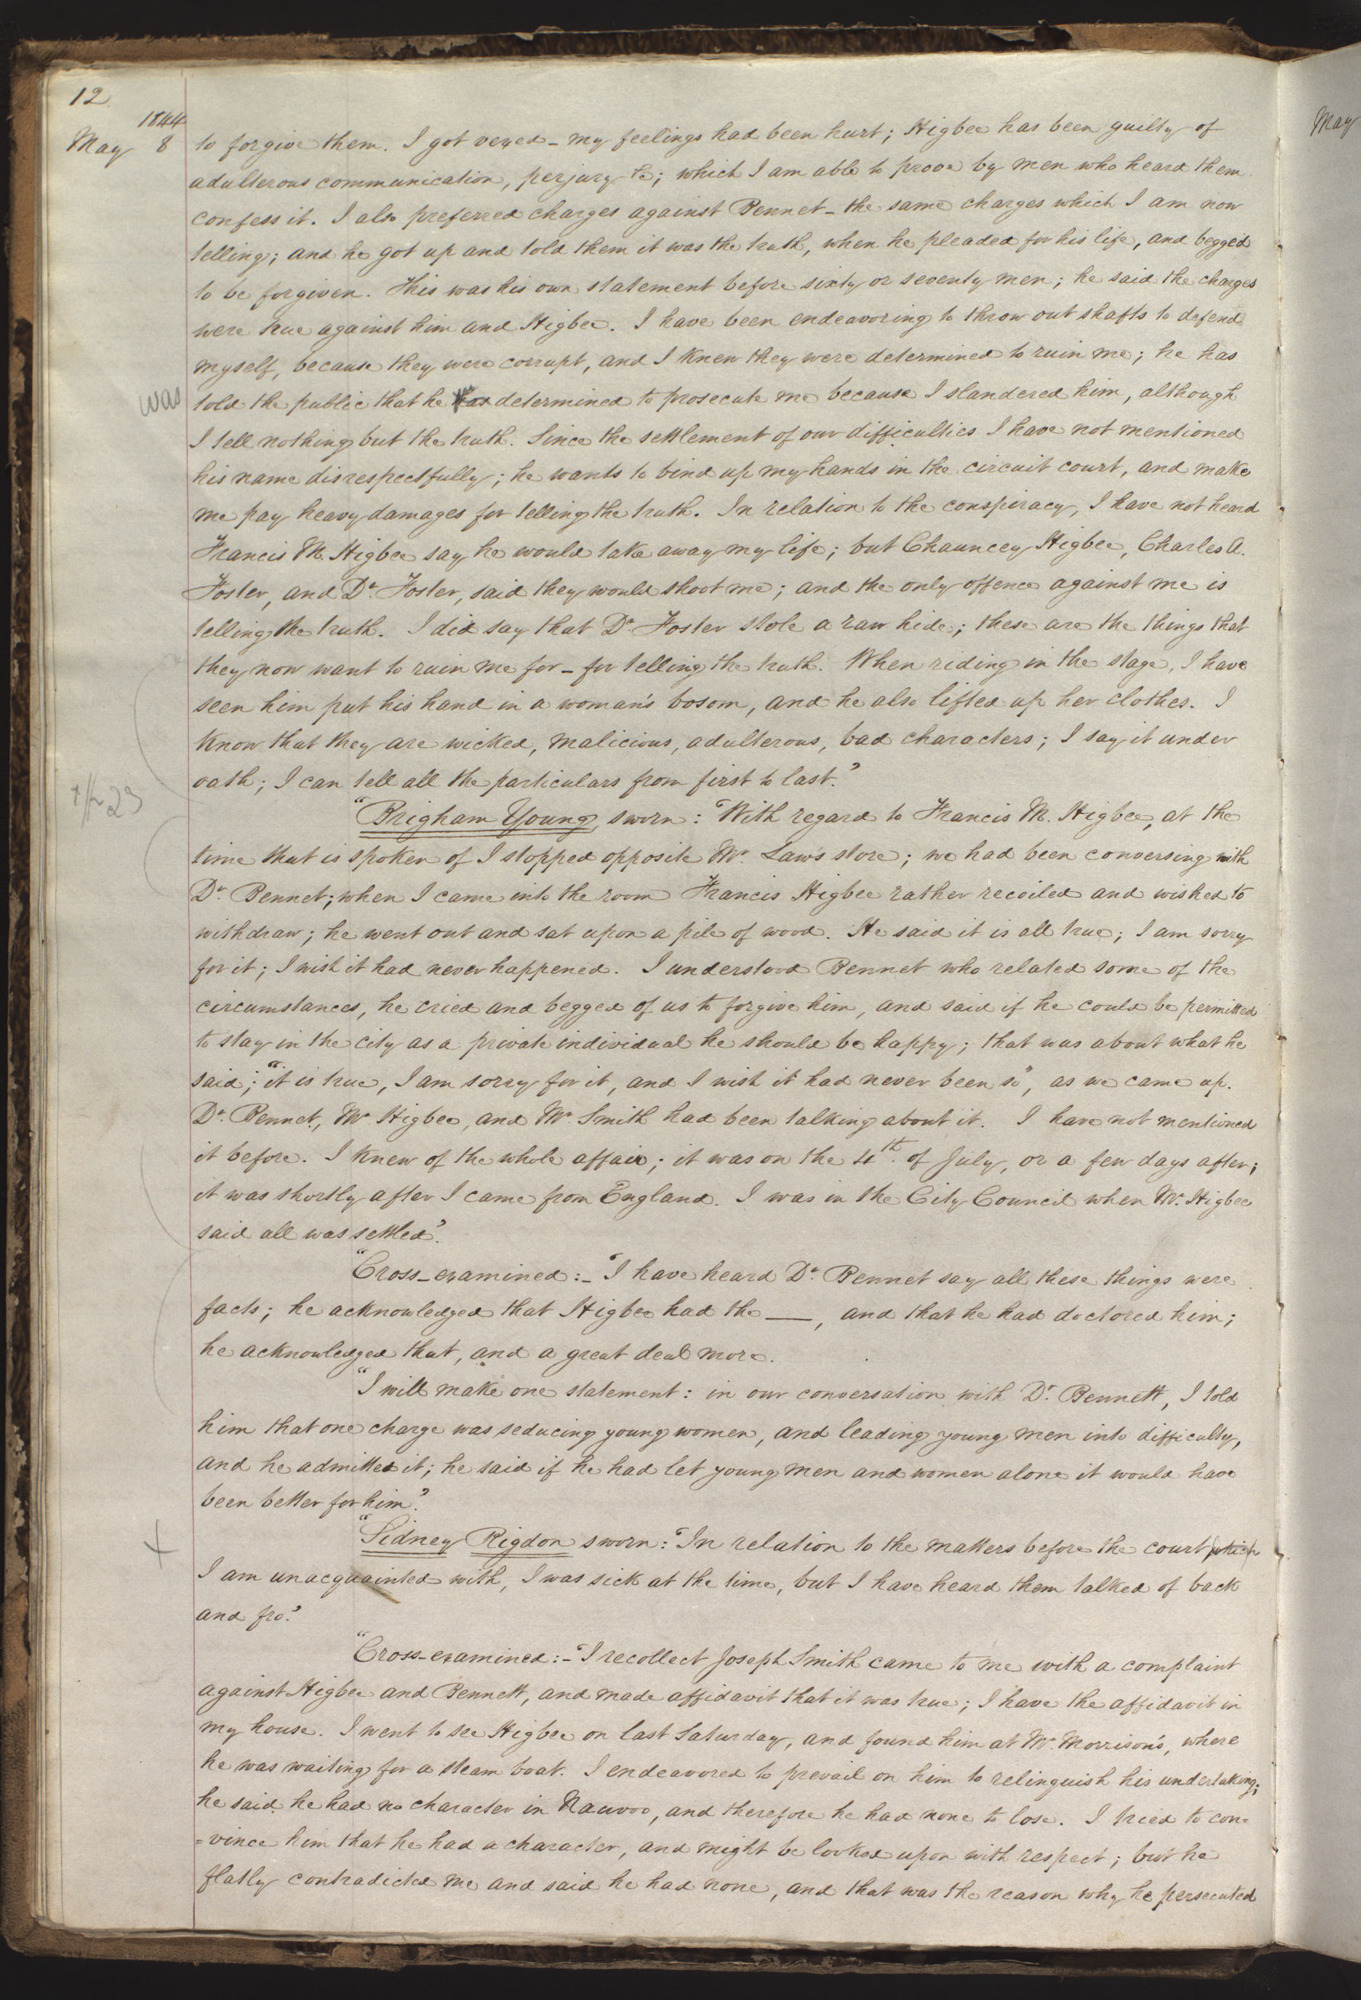 12
1844
May 8
May
to forgive them. I got vexed – my feelings had been hurt; Higbee has been guilty of
adulterous communication, perjury &c; which I am able to prove by men who heard them
confess it. I also preferred charges against Bennet – the same charges which I am now
telling; and he got up and told them it was the truth, when he pleaded for his life, and begged
to be forgiven. This was his own statement before sixty or seventy men; he said the charges
were true against him and Higbee. I have been endeavoring to throw out shafts to defend
myself, because they were corrupt, and I knew they were determined to ruin me; he has
was
told the public that he was determined to prosecute me because I slandered him, although
I tell nothing but the truth. Since the settlement of our difficulties I have not mentioned
his name disrespectfully; he wants to bind up my hands in the circuit court, and make
me pay heavy damages for telling the truth. In relation to the conspiracy, I have not heard
Francis M. Higbee say he would take away my life; but Chauncey Higbee, Charles A.
Foster, and Dr. Foster, said they would shoot me; and the only offence against me is
telling the truth. I did say that Dr. Foster stole a raw hide; these are the things that
they now want to ruin me for – for telling the truth. When riding in the stage, I have
seen him put his hand in a woman's bosom, and he also lifted up her clothes. I
know that they are wicked, malicious, adulterous, bad characters; I say it under
oath; I can tell all the particulars from first to last."
23
"Brigham Young, sworn: "With regard to Francis M. Higbee, at the
time that is spoken of I stopped opposite Mr. Law's store; we had been conversing with
Dr. Bennet; when I came into the room Francis Higbee rather recoiled and wished to
withdraw; he went out and sat upon a pile of wood. He said it is all true; I am sorry
for it; I wish it had never happened. I understood Bennet who related some of the
circumstances, he cried and begged of us to forgive him, and said if he could be permitted
to stay in the city as a private individual he should be happy; that was about what he
said; "it is true, I am sorry for it, and I wish it had never been so", as we came up.
Dr. Bennet, Mr. Higbee, and Mr. Smith had been talking about it. I have not mentioned
it before. I knew of the whole affair; it was on the 4th. of July, or a few days after;
it was shortly after I came from England. I was in the City Council when Mr. Higbee
said all was settled".
"Cross-examined:– "I have heard Dr. Bennet say all these things were
facts; he acknowledged that Higbee had the ——, and that he had doctored him;
he acknowledged that, and a great deal more.
"I will make one statement: in our conversation with Dr. Bennett, I told
him that one charge was seducing young women, and leading young men into difficulty,
and he admitted it; he said if he had let young men and women alone it would have
been better for him".
"Sidney Rigdon sworn: "In relation to the matters before the court which
I am unacquainted with, I was sick at the time, but I have heard them talked of back
and fro."
"Cross-examined:– "I recollect Joseph Smith came to me with a complaint
against Higbee and Bennett, and made affidavit that it was true; I have the affidavit in
my house. I went to see Higbee on last Saturday, and found him at Mr. Morrison's, where
he was waiting for a steam boat. I endeavored to prevail on him to relinquish his undertaking;
he said he had no character in Nauvoo, and therefore he had none to lose. I tried to con=
=vince him that he had a character, and might be looked upon with respect; but he
flatly contradicted me and said he had none, and that was the reason why he persecuted